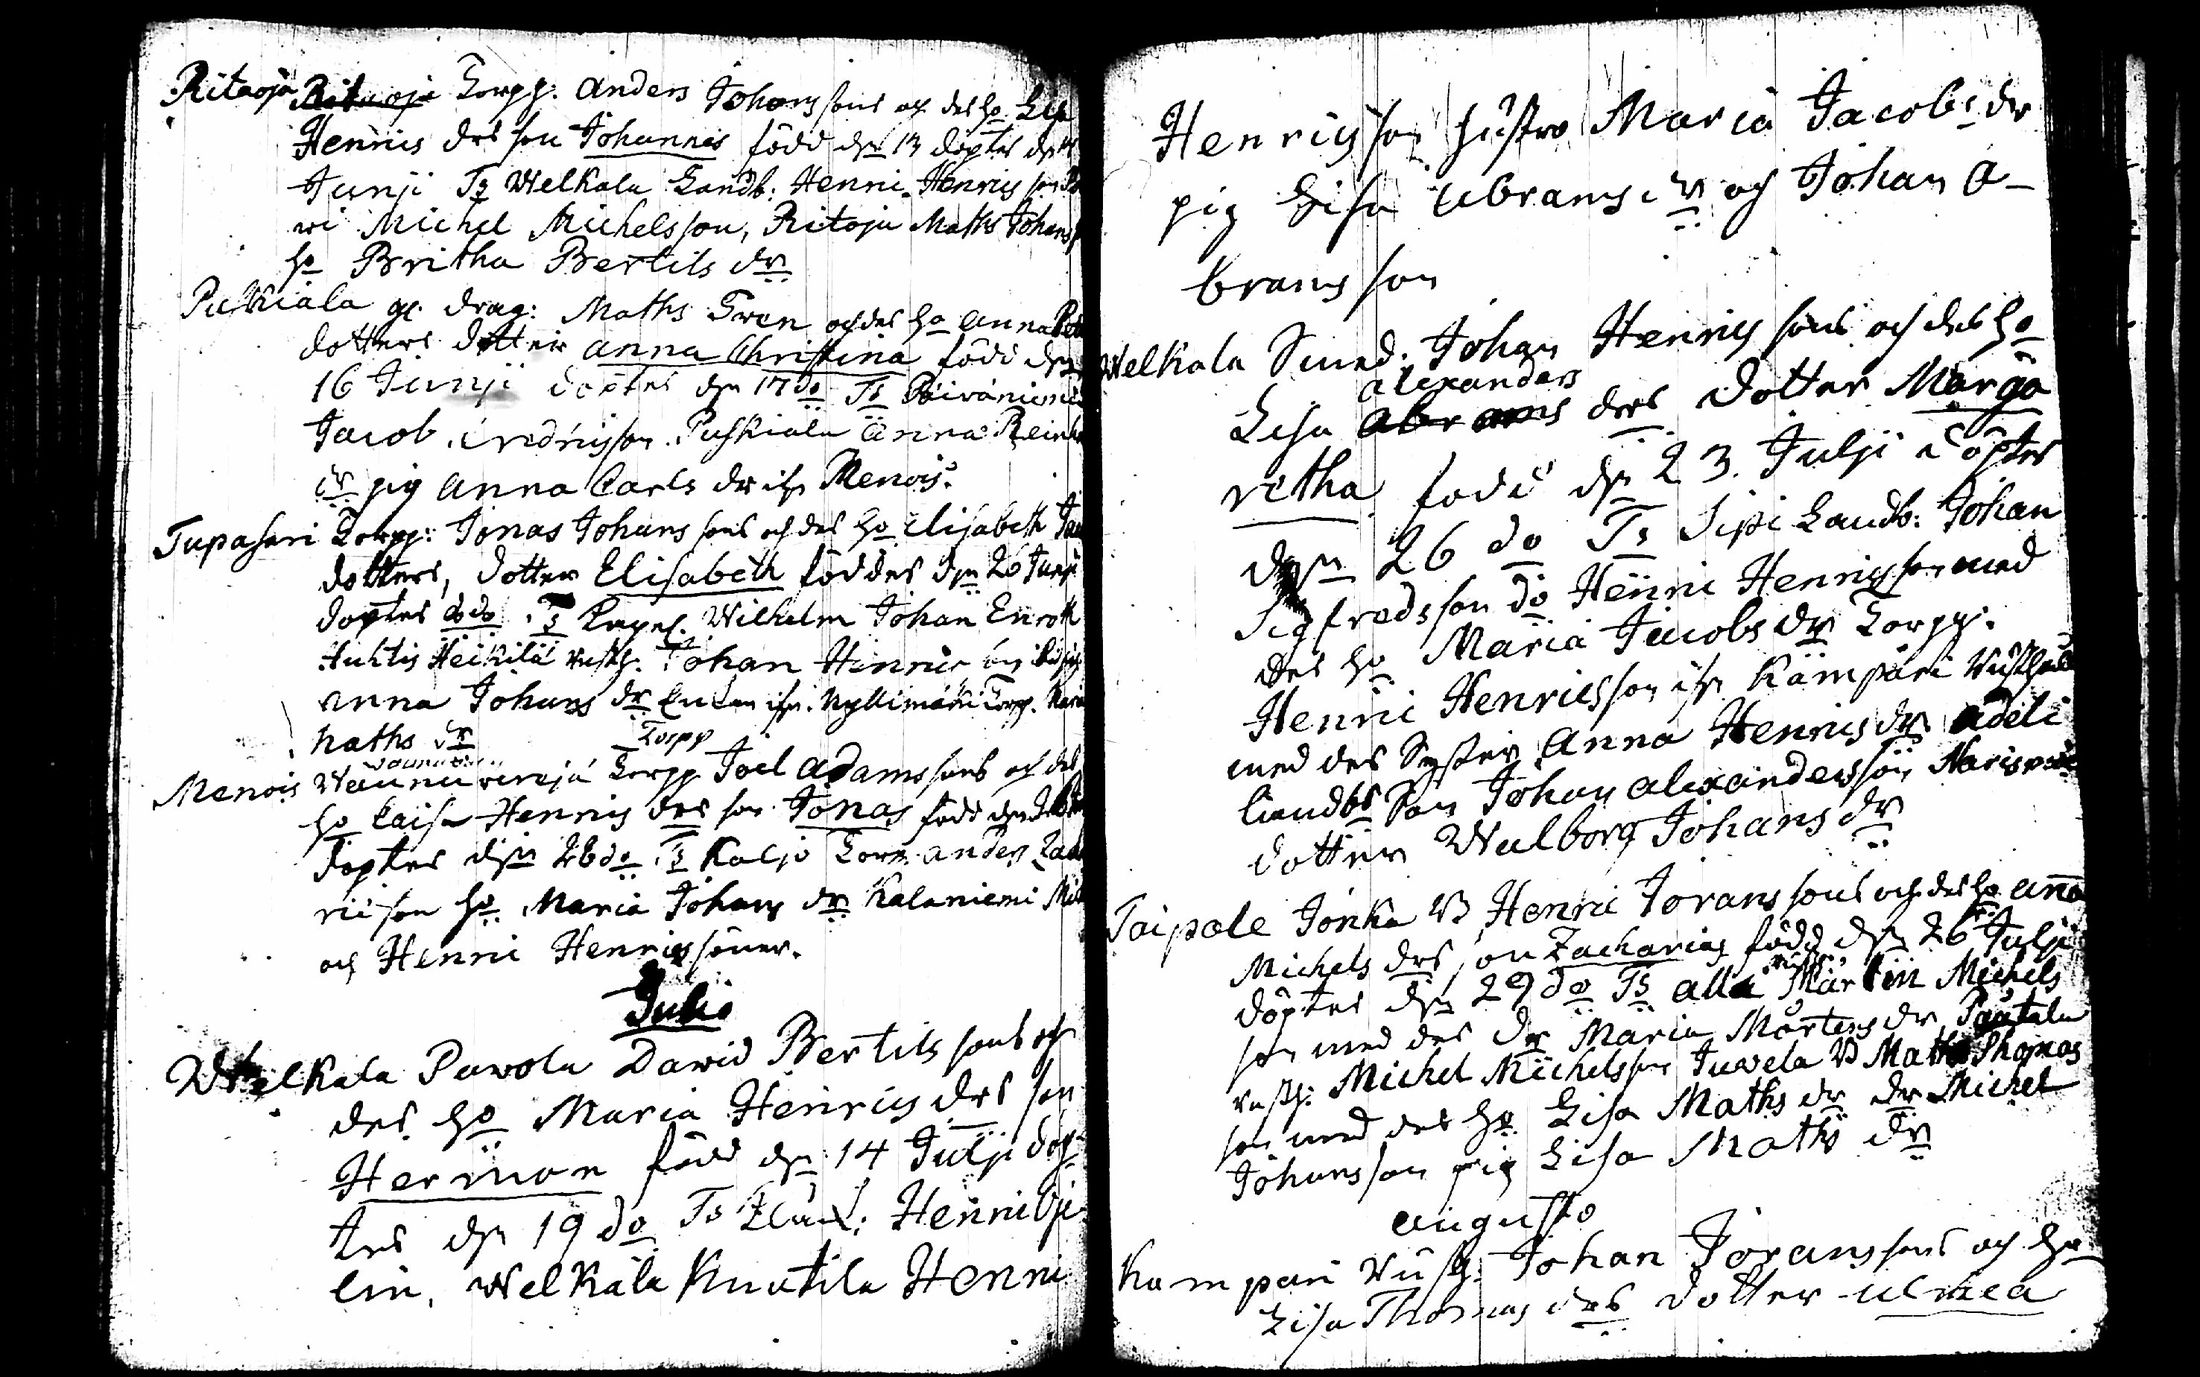 Ritaoja Torpp. Anders Johans sons och des ho Lisa
Henrics drs son Johannes född dn 13 döptes dn
Junji Ts Welkala Landb. Henric Henrics son
wi Michel Michelsson, Ritoja Maths Johans
ho Britha Bertils dr
Puskiala gl drag: Maths Tren och des ho Anna
dotters dotter Anna Christina född dn
16 Junji döptes dn 17 do Ts Päiväniemi
Jacob Puskiala Anna
dr pig Anna Carls dr ifr Menois.
Tupasari Torpp: Jonas Johans sons och des ho Elisabeth
dotters, dotter Elisabeth föddes dn 20 Junji
döptes do Ts Wilhelm Johan Enroth
Huhtis Heikilä rusth. Johan Henric
Anna Johans dr ifr. Myllimäki Torp.
Maths dr
Torpp
Menois Torpp Joel Adams sons och des
ho Caisa Henrics drs son Jonas född
döptes dn 26 do Ts Kaljo Torp. Anders
son ho Maria Johans dr Kalaniemi
och Henric Henrics söner.
Julio
Welkala Pawola David Bertils sons och
des ho Maria Henrics drs son
Herman född dn 14 Julji döp
tes dn 19 do Ts Henric Bje
lin, Welkala Knutila Henric
Henricsson hustro Maria Jacobs dr
pig Lisa Abrams dr och Johan A-
brams son
Welkala Smed. Johan Henrics sons och des ho
Alexanders
Lisa drs dotter Marga
retha född dn 23 Julji döptes
dn 26 do Ts Sipi Landb: Johan
Sigfredsson do Henric Henricsson med
des ho Maria Jacobs dr Torpp.
Henric Henricsson ifr Kämpäri Rusth
med des Syster Anna Henrics dr Adeli
Landbs Son Johan Alexandersson
dotter Walborg Johans dr
Taipale Jonka B Henric Jörans sons och des ho Anna
Michels drs son Zacharias född dn 26 Julji
döptes dn 29 do Ts Alla Mårten Michels
son med des dr Maria Mårtens dr Pautala
rusth: Michel Michelsson Juvela B Maths Thomas
son med des ho Lisa Maths dr dr Michel
Johansson pig Lisa Maths dr
Augusto
Kampari Rusth. Johan Jörans sons och ho
Lisa Thomas drs dotter Ulrica